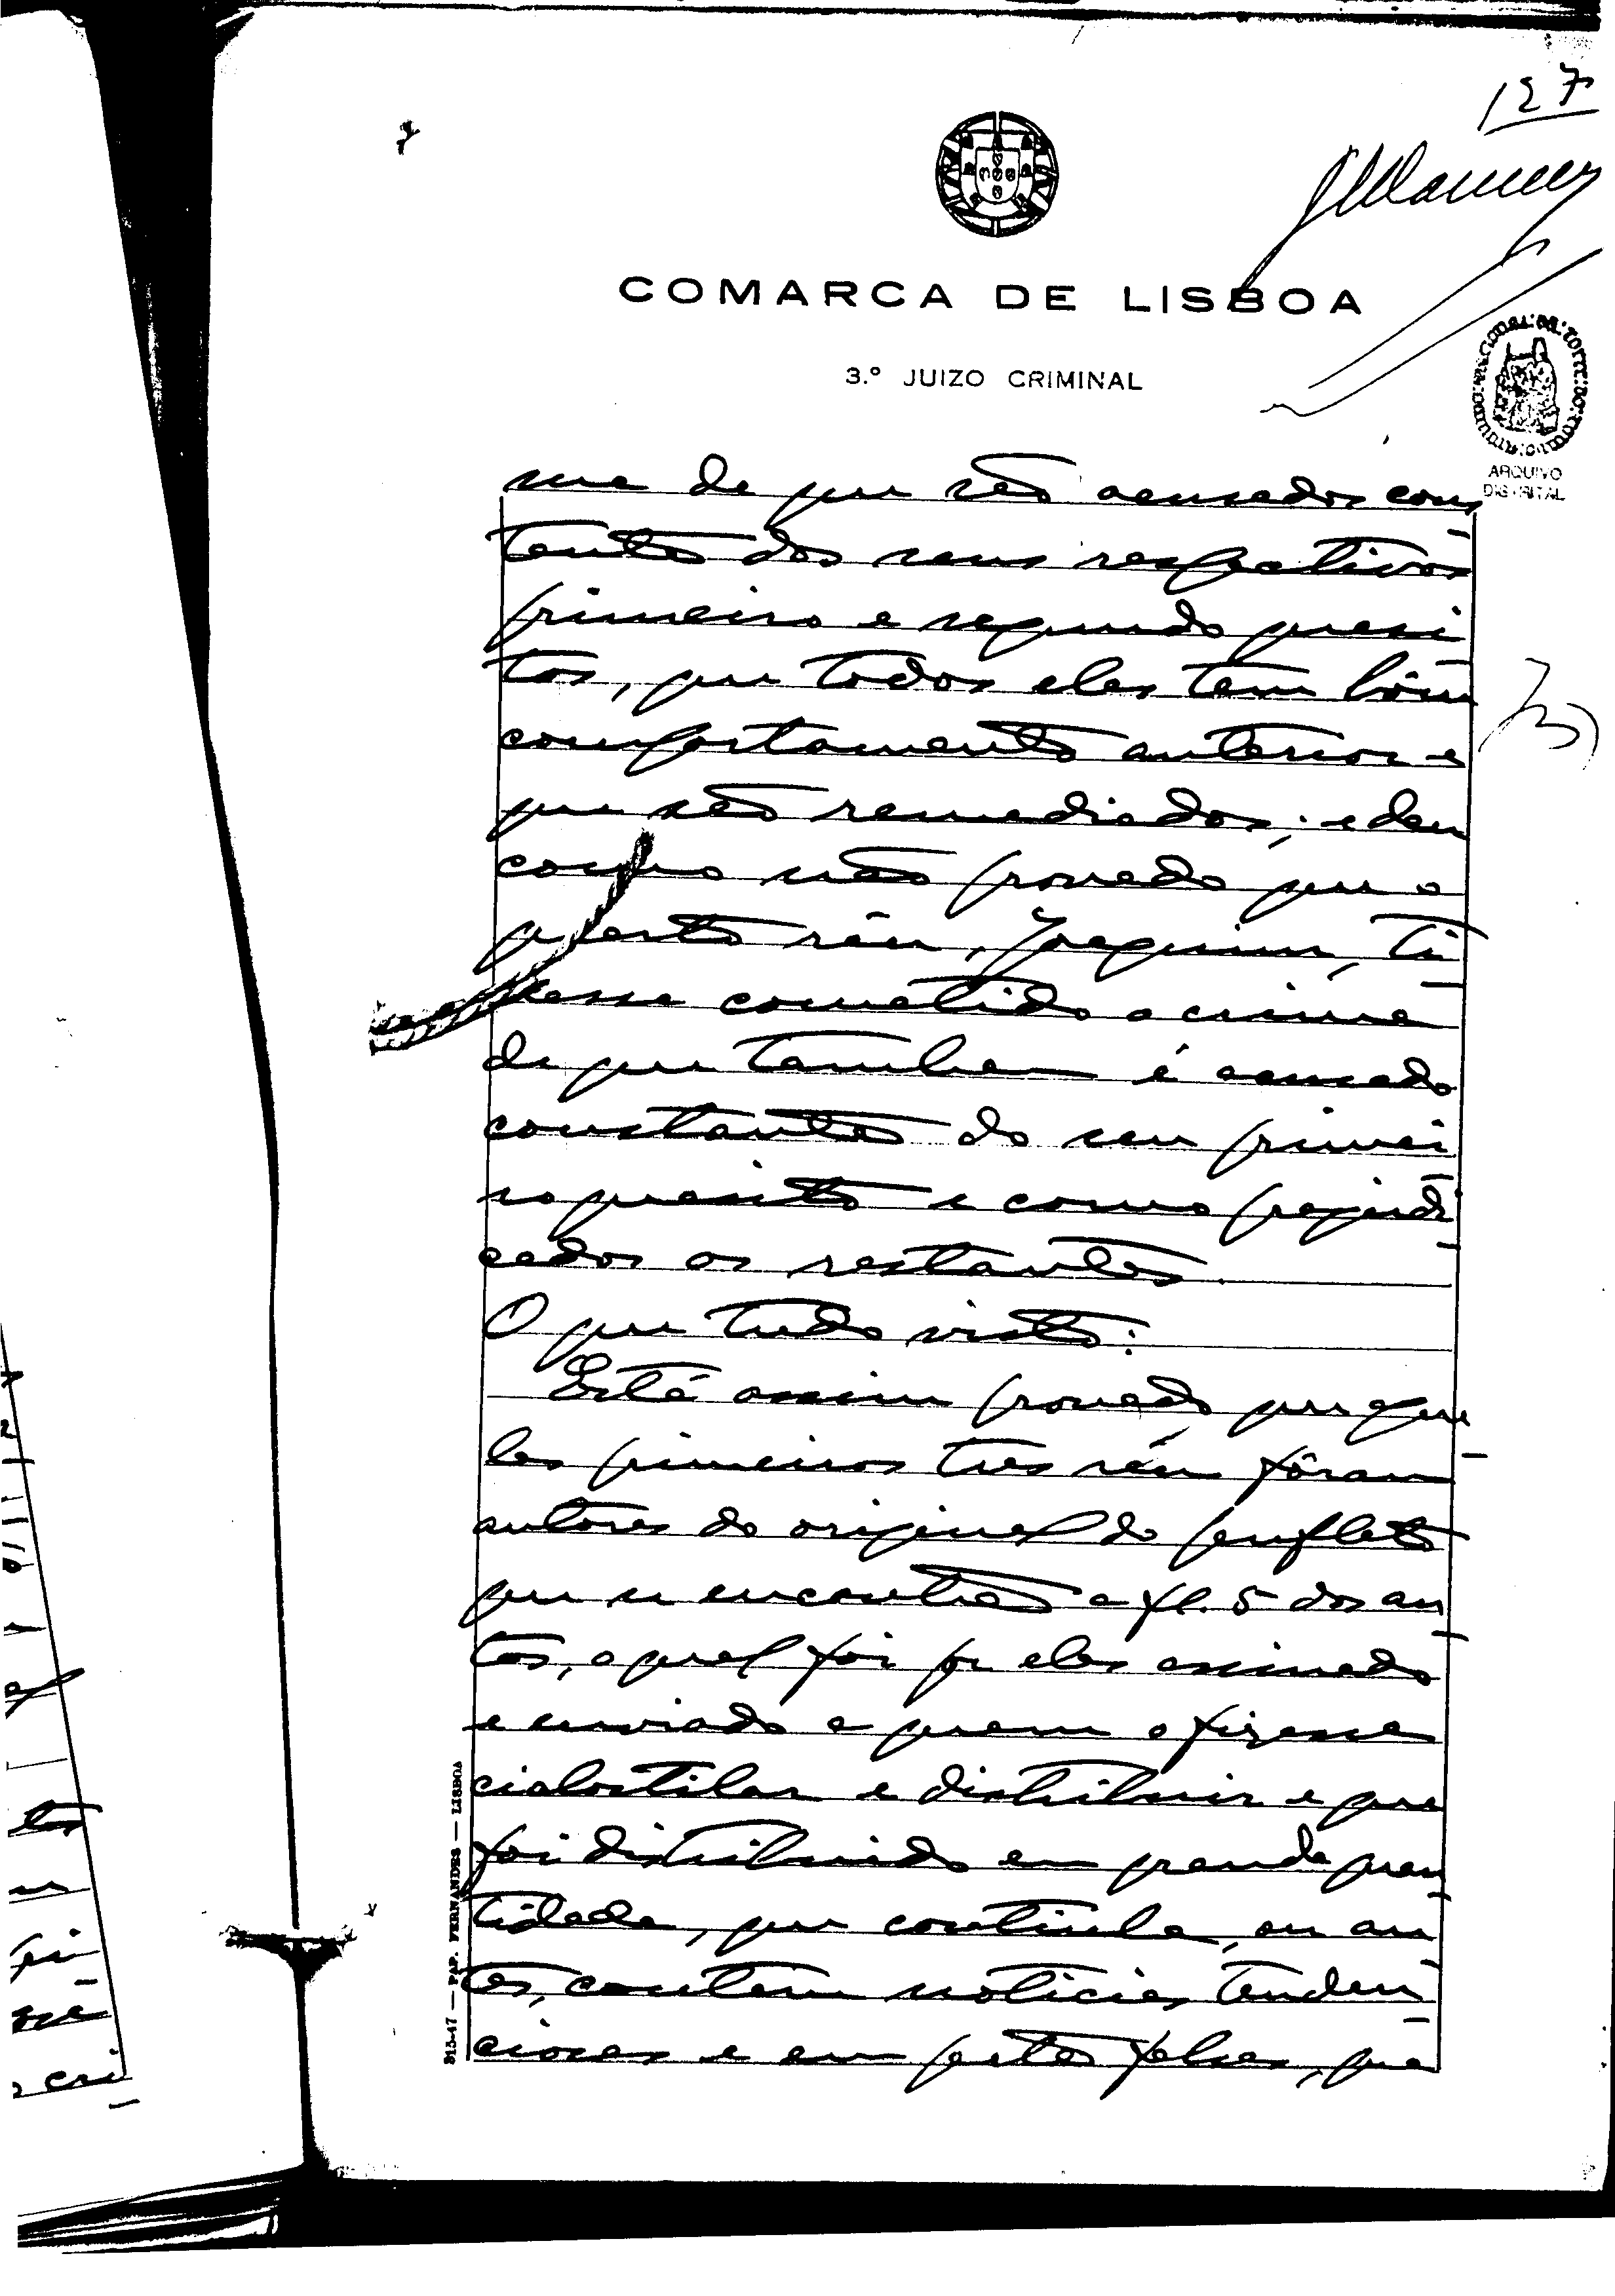 127
COMARCA DE LISBOA
3.º JUIZO CRIMINAL
ARQUIVO NACIONAL DA TORRE DO TOMBO
ARQUIVO
DISTRITAL
me de que são acusados cons
tante dos seus respectivos
primeiro e segundo quesi
tos, que todos eles tem bôm
comportamento anterior e
que são remediados; e deu
como não provado que o
quarto réu, Joaquim, ti
vesse cometido o crime
de que tambem é acusado
constante do seu primei
ro quesito e como prejudi
cados os restantes.
O que tudo visto:
Está assim provado que aque
les primeiros tres réus fôram
autores do original do panfleto
que se encontra a fl. 5 dos au
tos, o qual foi por eles assinado
e enviado a quem o fizesse
ciclostilar e distribuir e que
foi distribuido em grande quan
tidade, que continha, ou an
tes, contém noticias tenden
ciosas e em parte falsas, que
315-47 — PAP. FERNANDES — LISBOA